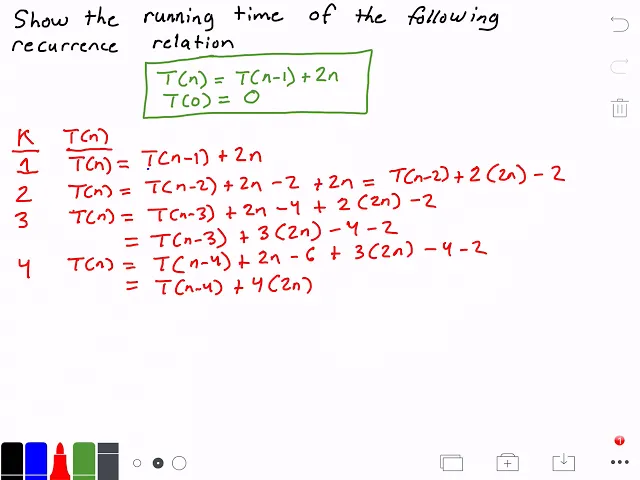 Show the running time of the following
recurrence relation
T(n) = T(n-1) + 2n
T(0) = 0
K T(n)
1 T(n) = T(n-1) + 2n
2 T(n) = T(n-2) + 2n - 2 + 2n = T(n-2) + 2(2n) - 2
3 T(n) = T(n-3) + 2n - 4 + 2(2n) - 2
= T(n-3) + 3(2n) - 4 - 2
4 T(n) = T(n-4) + 2n - 6 + 3(2n) - 4 - 2
= T(n-4) + 4(2n)